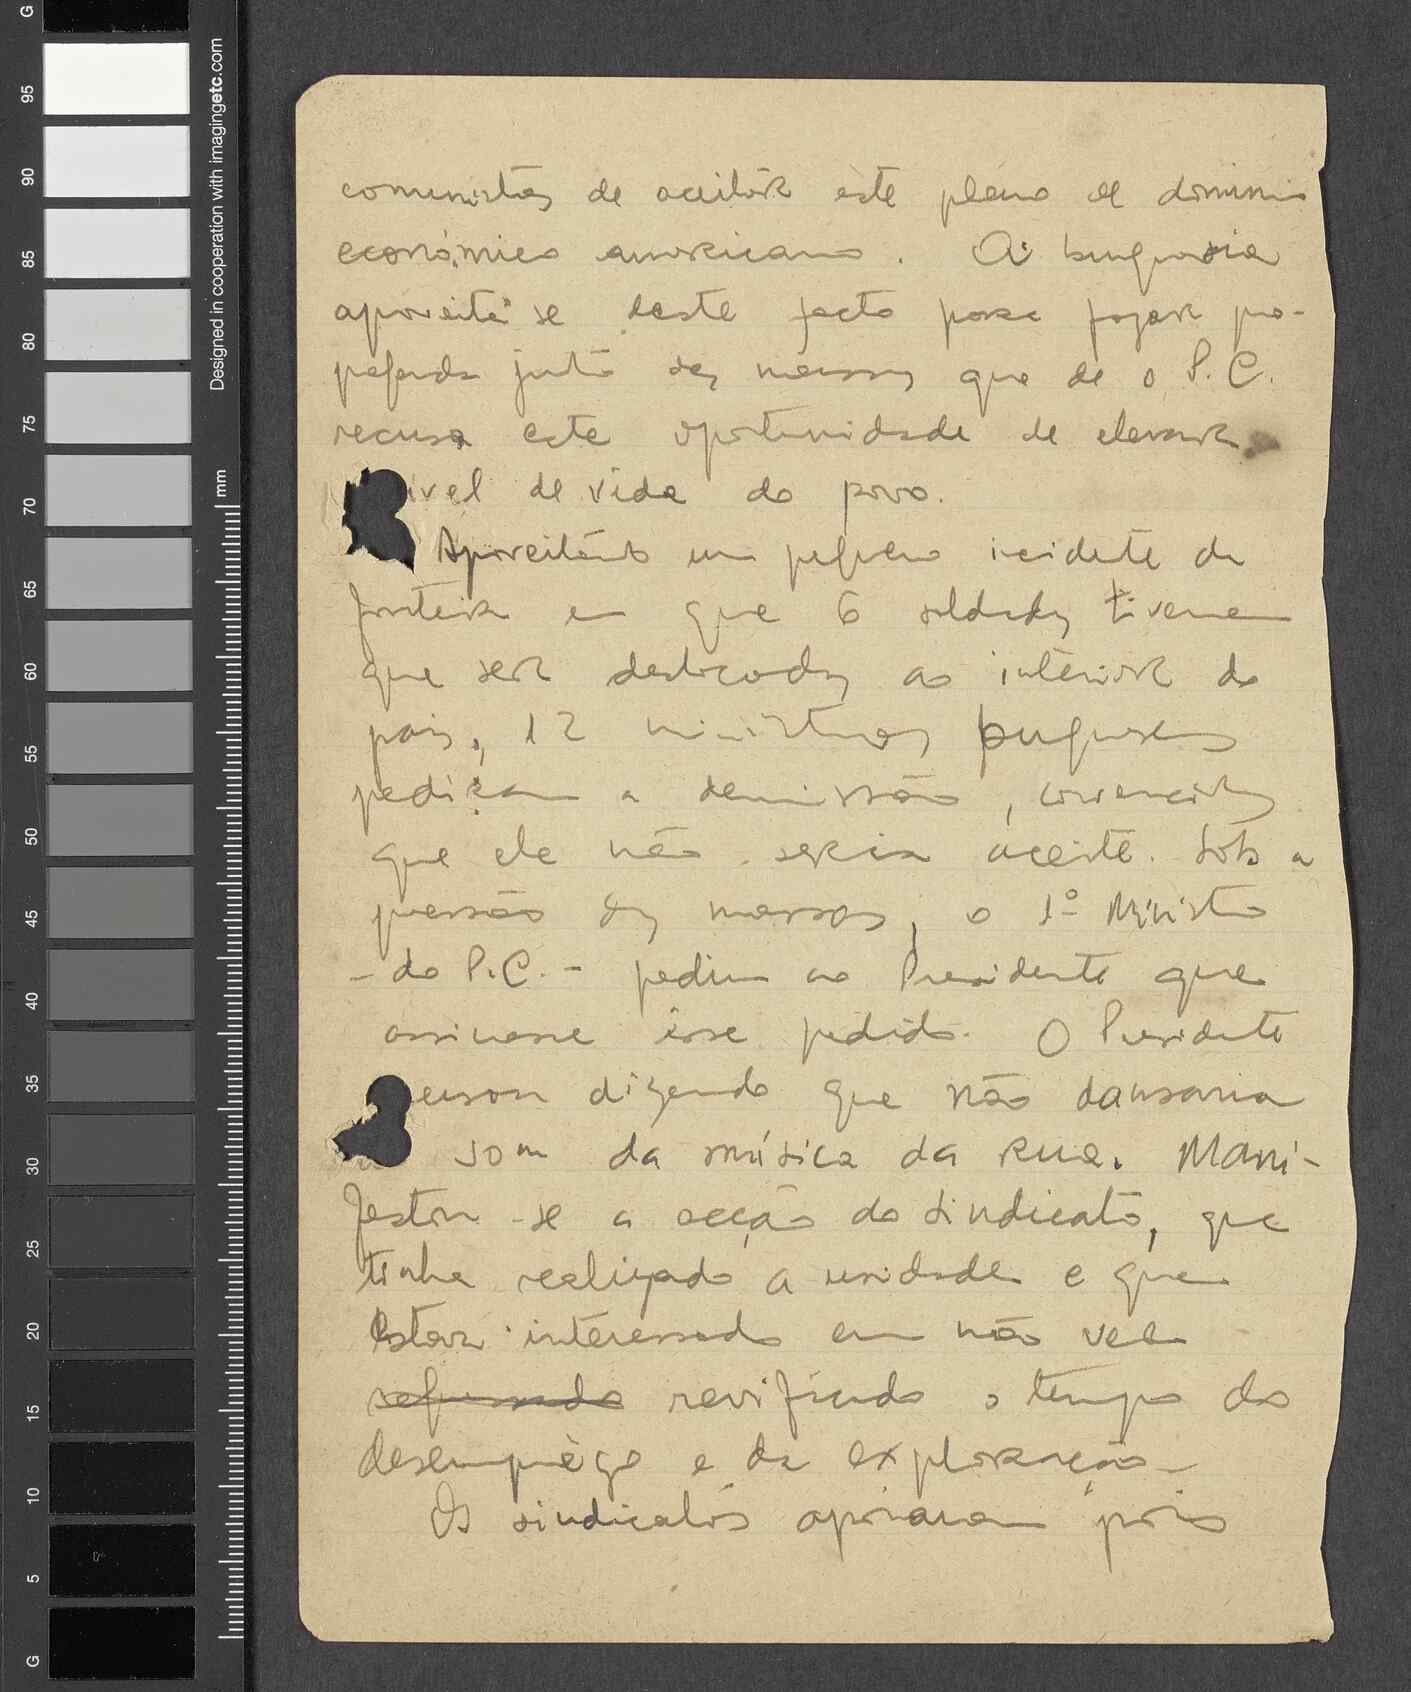 comunistas de aceitar este plano de dominio
económico americano. A burguesia
aproveita se deste facto para fazer pro-
paganda junto das massas que de o P.C.
recusa esta oportunidade de elevar
ivel de vida do povo.
Aproveitando um pequeno incidente de
fronteira em que 6 soldados tiveram
que ser deslocados ao interior do
pais, 12 ministros burgueses
pediram a demissão, convencidos
que ela não seria aceite. Sob a
pressão das massas, o 1º Ministro
- do P.C. - pediu ao Presidente que
assinasse esse pedido. O Presidente
cusou dizendo que não dansaria
som da música da rua. Mani-
festou-se a acção do sindicato, que
tinha realizado a unidade e que
estava interessado em não ver
revificado o tempo do
desemprêgo e da exploração
Os sindicatos apoiaram pois
G
95
90
85
80
75
70
65
60
55
50
45
40
35
30
25
20
15
10
5
G
Designed in cooperation with imagingetc.com
mm